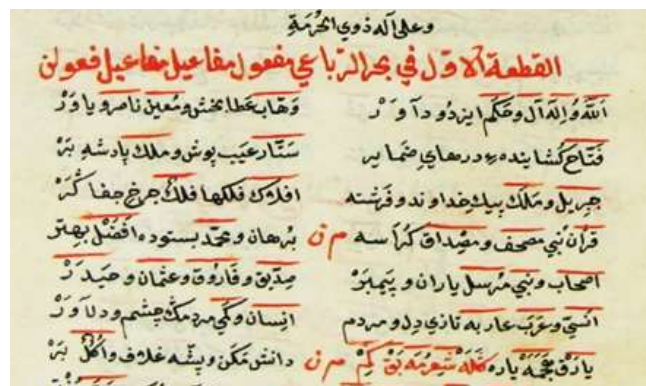 وعلى آله ذوي الحرمة
القطعة الاول في بحر الرباعي مفعول مفاعيل مفاعيل فعولن
الله واله آل وحكم ايزد و داور وهاب عطا بخش و معين ناصر و ياور
فتاح كشاينده درهاي ضماير ستار عيب پوش و ملك پادشه بر
جبريل و ملك پيك خداوند و فرشته افلاك فلكها فلك چرخ جفا كر
قرآن نبي مصحف و مصداق كراسه م ن برهان و محمد بستوده افضل بهتر
اصحاب و نبي مرسل ياران و پيمبر صديق و فاروق و عثمان و حيدر
انسي و عرب عاربه تازي دل و مردم انسان و كي مردمك چشم و دلاور
م ن دانش مكن و پشه غلاف و اكل بر